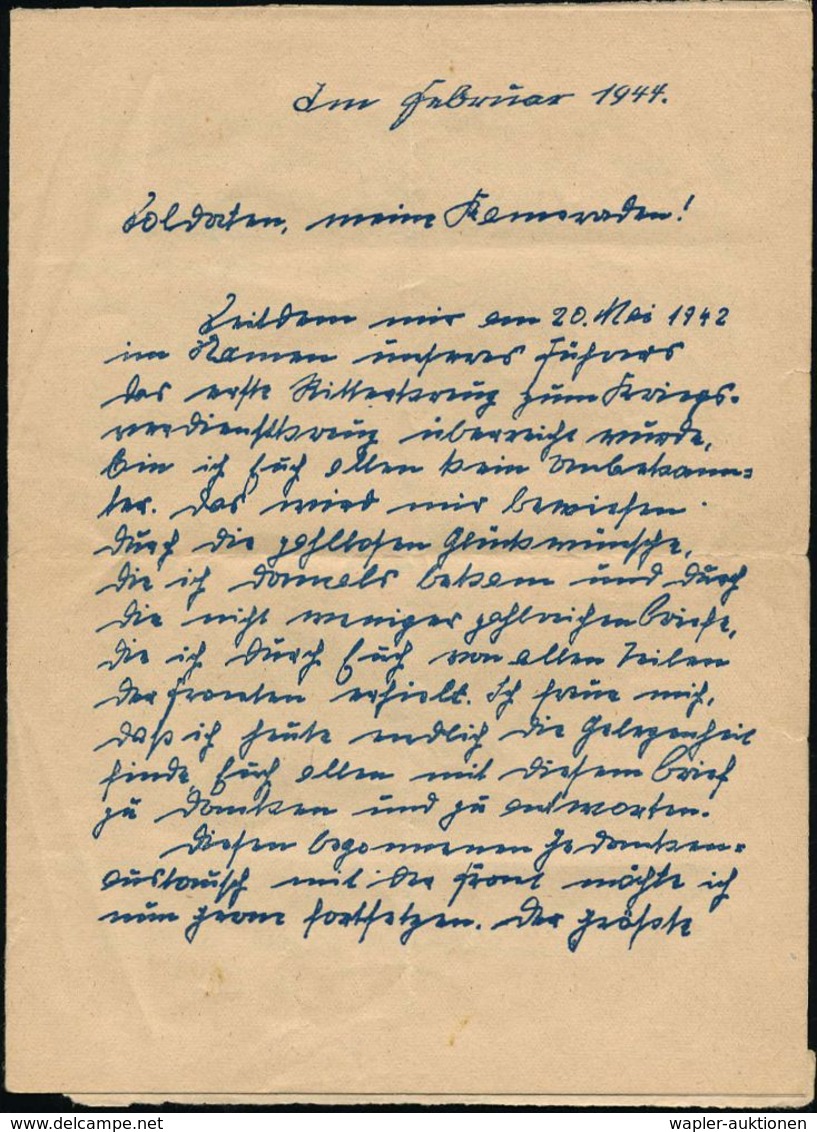 Im Februar 1944.
Soldaten, meine Kameraden!
Seitdem mir am 20. Mai 1942
im Namen unseres Führers
das erste Ritterkreuz zum Kriegs-
verdienstkreuz überreicht wurde,
bin ich Euch allen kein Unbekann=
ter. Das wird mir bewiesen
durch die zahllosen Glückwünsche,
die ich damals bekam und durch
die nicht weniger zahlreichen Briefe,
die ich durch Euch von allen Teilen
der Fronten erhielt. Ich freue mich,
daß ich heute endlich die Gelegenheit
finde, Euch allen mit diesem Brief
zu danken und zu antworten.
Diesen begonnenen Gedanken=
austausch mit der Front möchte ich
nun gerne fortsetzen. Der größte
wapler-auktionen